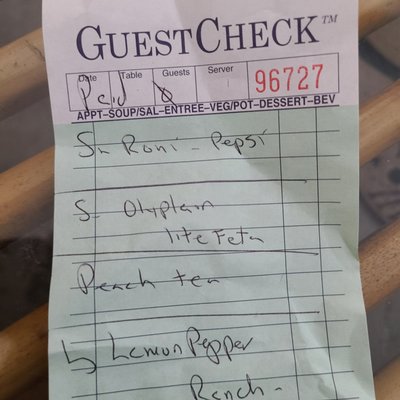 GUESTCHECK™
Date Table Guests Server
Paid
96727
APPT-SOUP/SAL-ENTREE-VEG/POT-DESSERT-BEV
Sm Roni - Pepsi
S
lite Feta
Peach tea
Lemon Pepper
Ranch -